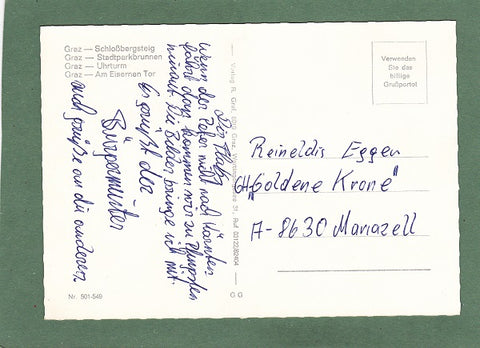 Graz — Schloßbergsteig
Graz — Stadtparkbrunnen
Graz — Uhrturm
Graz — Am Eisernen Tor
Wenn der Vater nicht nach Kärnten
fährt dann kommen wir zu Pfingsten
hinauf. Die Bilder bringe ich mit.
Es grüßt der
Bürgermeister
auch grüße an die anderen.
Nr. 501-549
Verlag R. Graf, Graz,
G G
Verwenden
Sie das
billige
Grußporto!
Reineldis Eggen
GH „Goldene Krone"
A-8630 Mariazell